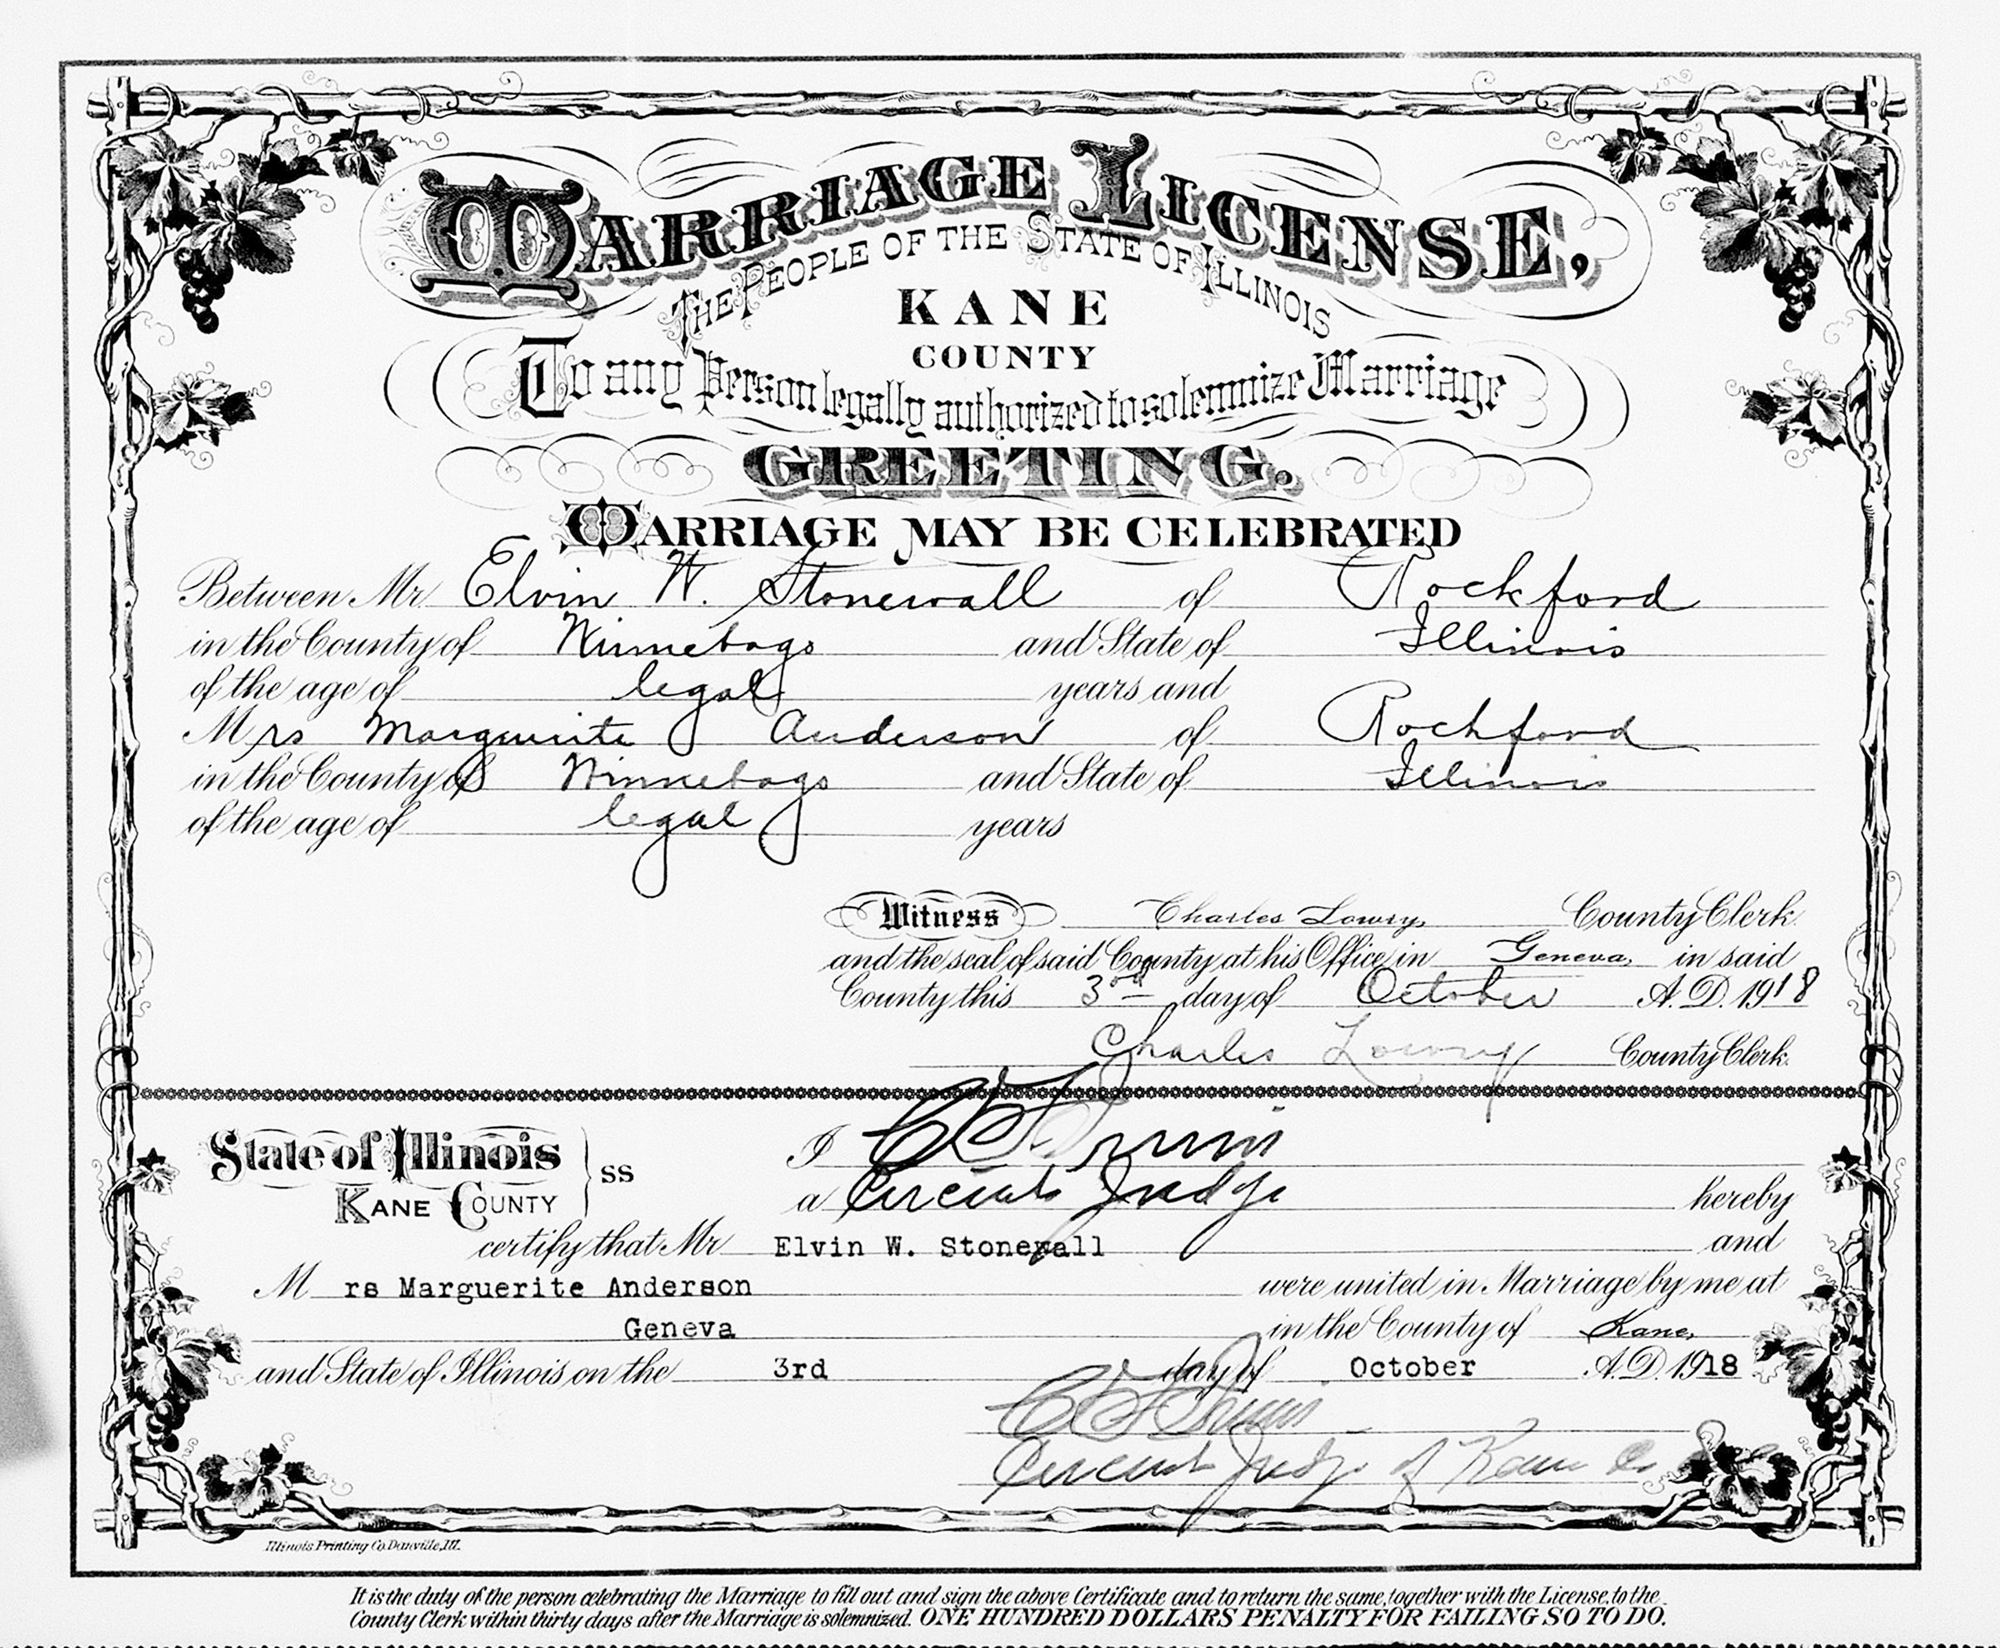 MARRIAGE LICENSE,
THE PEOPLE OF THE STATE OF ILLINOIS
KANE
COUNTY
To any Person legally authorized to solemnize Marriage
GREETING.
MARRIAGE MAY BE CELEBRATED
Between Mr. Elvin W. Stonewall of Rockford
in the County of Winnebago and State of Illinois
of the age of legal years and
Mrs Marguerite Anderson of Rockford
in the County of Winnebago and State of Illinois
of the age of legal years
Witness Charles Lowry, County Clerk
and the seal of said County at his Office in Geneva, in said
County this 3rd day of October A. D. 1918
Charles Lowry County Clerk.
State of Illinois } ss I
KANE COUNTY a Circuit Judge hereby
certify that Mr Elvin W. Stonewall and
Mrs Marguerite Anderson were united in Marriage by me at
Geneva in the County of Kane,
and State of Illinois on the 3rd day of October A. D. 1918
Circuit Judge of Kane Co
Illinois Printing Co. Danville, Ill.
It is the duty of the person celebrating the Marriage to fill out and sign the above Certificate and to return the same, together with the License, to the
County Clerk within thirty days after the Marriage is solemnized. ONE HUNDRED DOLLARS PENALTY FOR FAILING SO TO DO.